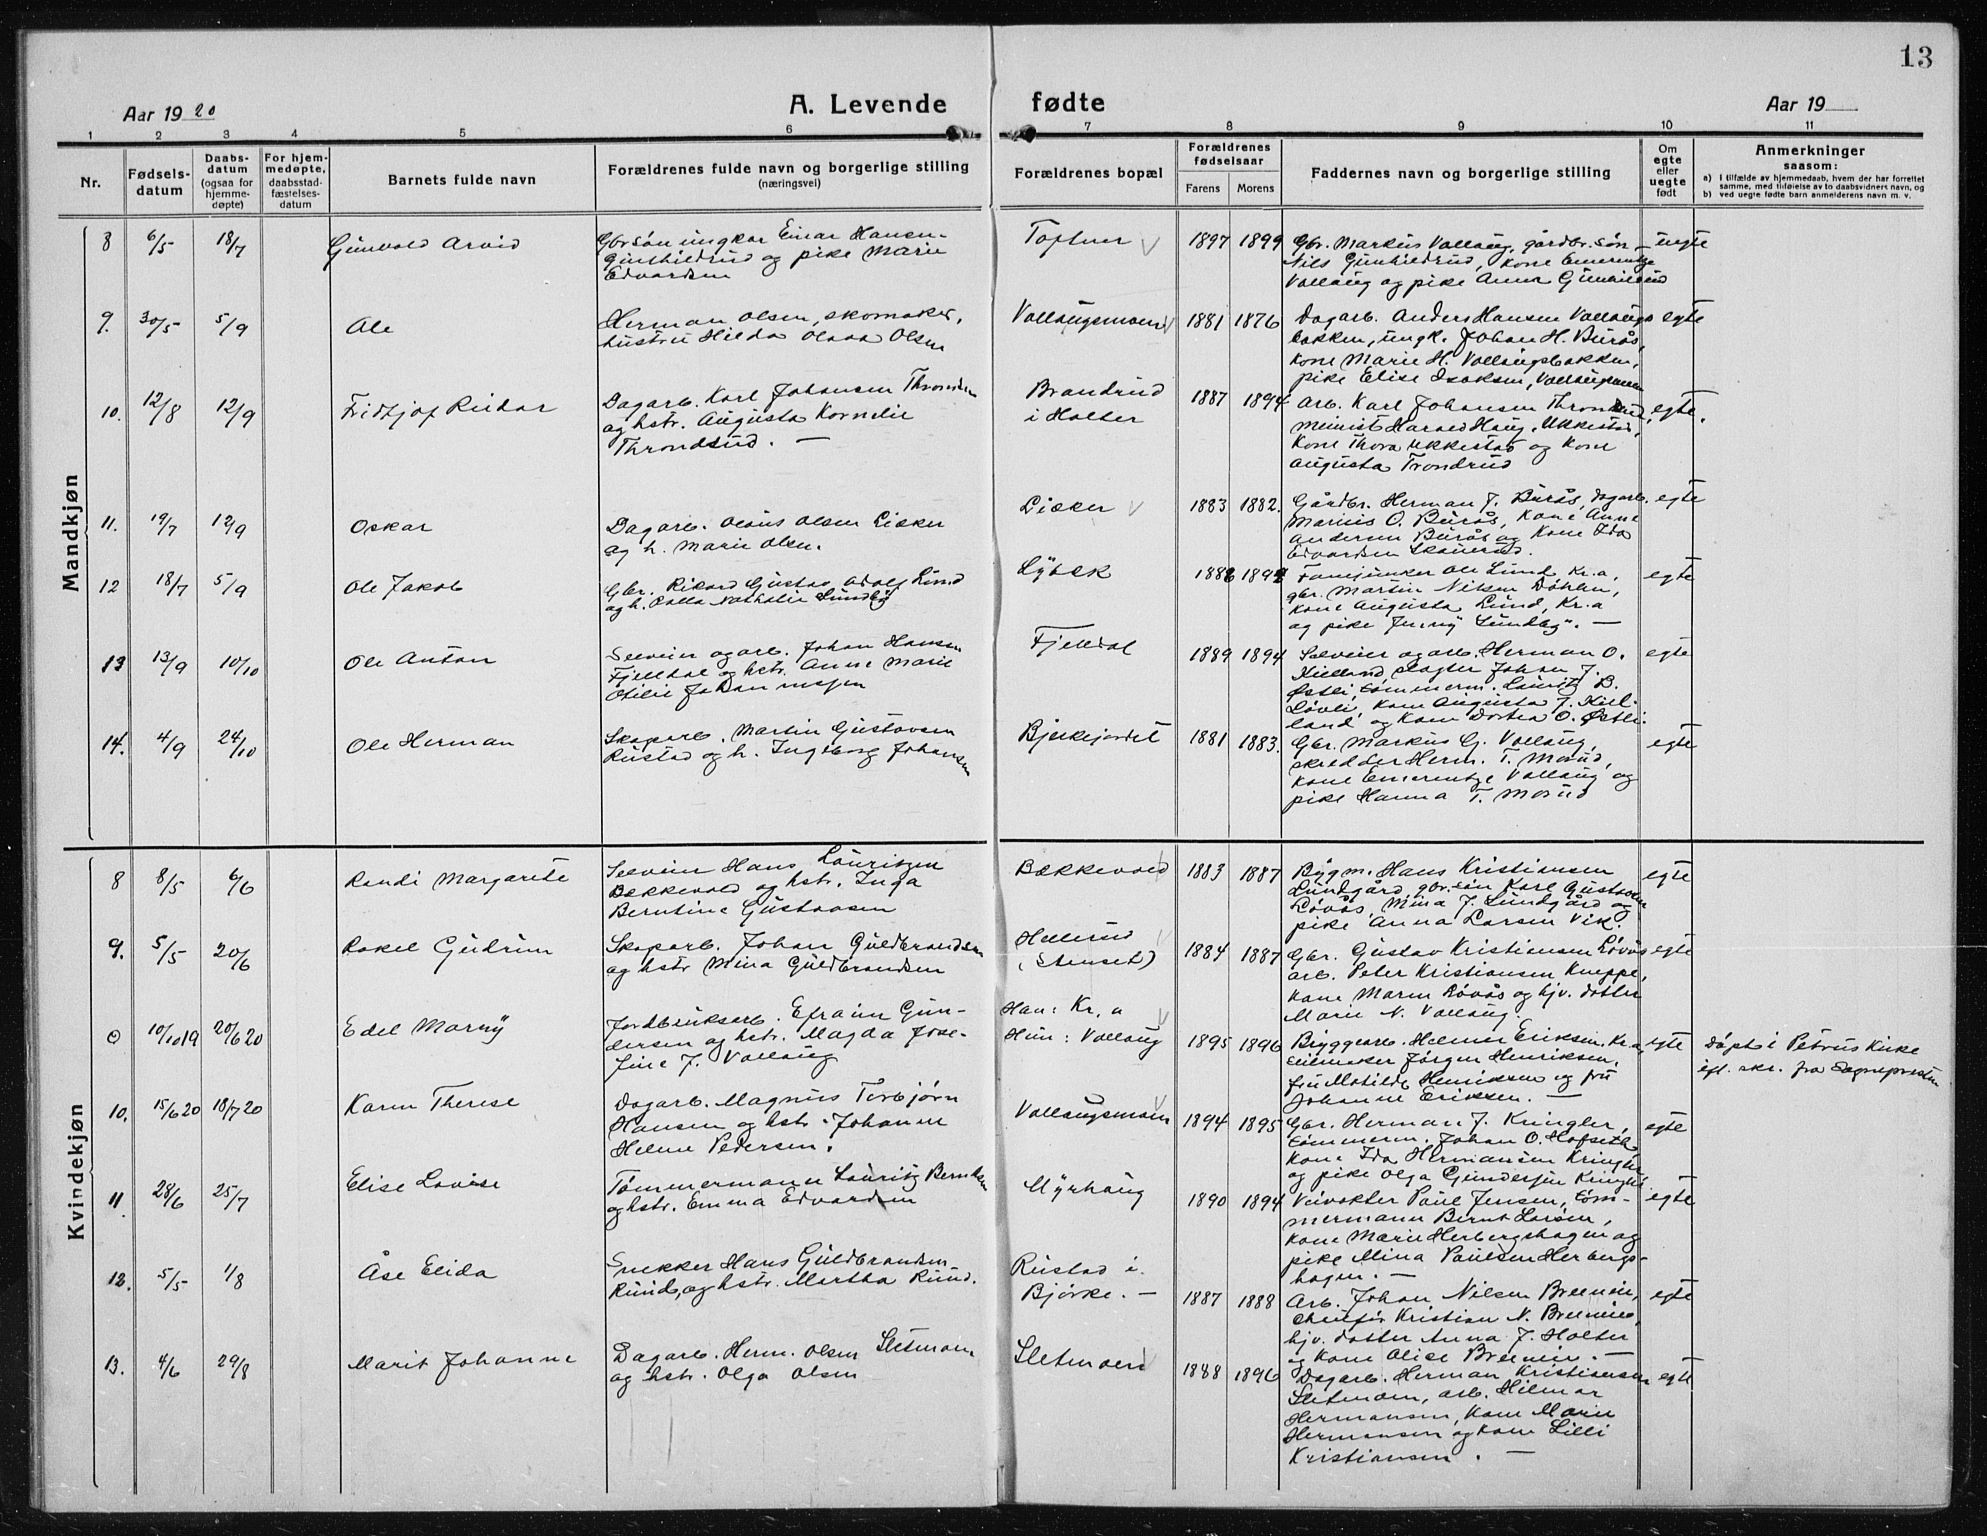 13
Aar 1920
A. Levende fødte
Aar 19
1 2 3 4 5 6 7 8 9 10 11
Nr.
Fødsels-
datum
Daabs-
datum
(ogsaa for
hjemme-
døpte)
For hjem-
medøpte,
daabsstad-
fæstelses-
datum
Barnets fulde navn
Forældrenes fulde navn og borgerlige stilling
(næringsvei)
Forældrenes bopæl
Forældrenes
fødselsaar
Farens Morens
Faddernes navn og borgerlige stilling
Om
egte
eller
uegte
født
Anmerkninger
saasom:
a) I tilfælde av hjemmedaab, hvem der har forrettet
samme, med tilføielse av to daabsvidners navn, og
b) ved uegte fødte barn anmelderens navn m. v.
Mandkjøn
8 6/5 18/7 Gunvald Arvid
Gbrsøn ungkar Einar Hansen
Gunhildrud og pike Marie
Edvardsen
Toftner 1897 1899
Gbr. Markus Vollaug, gårdbr. søn
Nils Gunhildrud, kone Emerentze
Vollaug og pike Anna Gunhildrud
uegte
9. 30/5 5/9 Ole
Herman Olsen, skomaker,
hustru Hilda Olava Olsen
Vollaugsmoen 1881 1876
Dagarb. Anders Hansen Vollaugs
bakken, ungk. Johan H. Burås,
kone Marie H. Vollaugsbakken,
pike Elise Isaksen, Vollaugmoen
egte
10. 12/8 12/9 Fridtjof Reidar
Dagarb. Karl Johansen Throndsen
og hstr. Augusta Kornelie
Throndsud. —
Brandrud
i Holter
1887 1894
Arb. Karl Johansen Throndsrud,
Harald Haug, Ukkestad,
kone Thora Ukkestad og kone
Augusta Trondrud
egte.
11. 19/7 12/9 Oskar
Dagarb. Olaus Olsen Lisker
og h. Marie Olsen.
Lisker 1883 1882.
Gårdbr. Herman J. Burås, dagarb.
Marius O. Burås, kone Anne
Andersen Burås og kone Ida
Edvardsen
egte
12 18/7 5/9 Ole Jakob
Gbr. Rikard Gustav Adolf Lund
og h. Nathalie Lundby
Lybek 1882 1892
Fanejunker Ole Lund Kr.a,
gbr. Martin Nilsen Døhlen,
kone Augusta Lund, Kr.a
og pike Jenny Lundby. —
egte
13 13/9 10/10 Ole Anton
Selveier og arb. Johan Hansen
Fjelldal og hstr. Anne Marie
Otilie Johannessen
Fjelldal 1889 1894
Selveier og arb. Herman O.
Kielland, slagter Johan J.
Østli, tømmerm. Lauritz B.
Løvli, kone Augusta J. Kiel-
land og kone Dortea O. Østli.
egte
14. 4/9 24/10 Ole Herman
Skogarb. Martin Gustavsen
Rustad og h. Ingeborg Johansen
Bjerkejordet 1881 1883.
Gbr. Markus G. Vollaug,
skredder Herm. T. Morud,
kone Emerentze Vollaug og
pike Hanna T. Morud
egte
Kvindekjøn
8 8/5 6/6 Randi Margarete
Selveier Hans Lauritzen
Bækkevold og hstr. Inga
Berntine Gustavsen
Bækkevold 1883 1887
Bygm. Hans Kristiansen
Lundgård, gbr. søn Karl Gustavsen
Løvås, Mina J. Lundgård og
pike Anna Larsen Vik.
egte
9. 5/5 20/6 Rakel Gudrun
Skogarb. Johan Guldbrandsen
og hstr Mina Guldbrandsen
Hellerud
(Stenset)
1884 1887
Gbr. Gustav Kristiansen Løvås
arb. Peter Kristiansen Kneppe,
kone Maren Løvås og hjv. datter
Marie N. Vollaug.
egte
0 10/10 19 20/6 20 Edel Marny
Jordbruksarb. Efraim Gun-
dersen og hstr. Magda Jose-
fine J. Vollaug
Han: Kr.a
Hun: Vollaug
1895 1896
Byggearb. Helmer Eriksen, Kr.a,
Jørgen Henriksen,
fru Matilde Henriksen og fru
Johanne Eriksen. —
egte
Døpt i Petrus Kirke
efl. skr. fra Sognepresten
10. 15/6 20 18/7 20 Karen Therese
Dagarb. Magnus Torbjørn
Hansen og hstr. Johanne
Helene Pedersen.
Vollaugsmoen 1894 1895
Gbr. Herman J. Kringler,
tømmerm. Johan O. Hofseth
kone Ida Hermansen Kringler
og pike Olga Gundersen Kringler
egte
11 28/6 25/7 Elise Lovise
Tømmermann Lauritz Berntsen
og hstr. Emma Edvardsen
Myrhaug 1890 1894
Veivokter Paul Jensen, tøm-
mermann Bernt Larsen,
kone Marie Herbergshagen og
pike Mina Paulsen Herbergs-
hagen. —
egte
12. 5/5 1/8 Åse Elida
Snekker Hans Guldbrandsen
Rund, og hstr. Martha Rund.
Rustad i
Bjørke. —
1887 1888
Arb. Johan Nilsen Breenen,
Chauffør Kristian N. Breenen
hjv. datter Anna J. Holter
og kone Alise Breenen. —
egte
13. 4/6 29/8 Marit Johanne
Dagarb. Herm. Olsen Sletmoen
og hstr. Olga Olsen
Sletmoen 1888 1896
Dagarb. Herman Kristiansen
Sletmoen, arb. Hilmar
Hermansen, kone Marie
Hermansen og kone Lilli
Kristiansen. —
egte